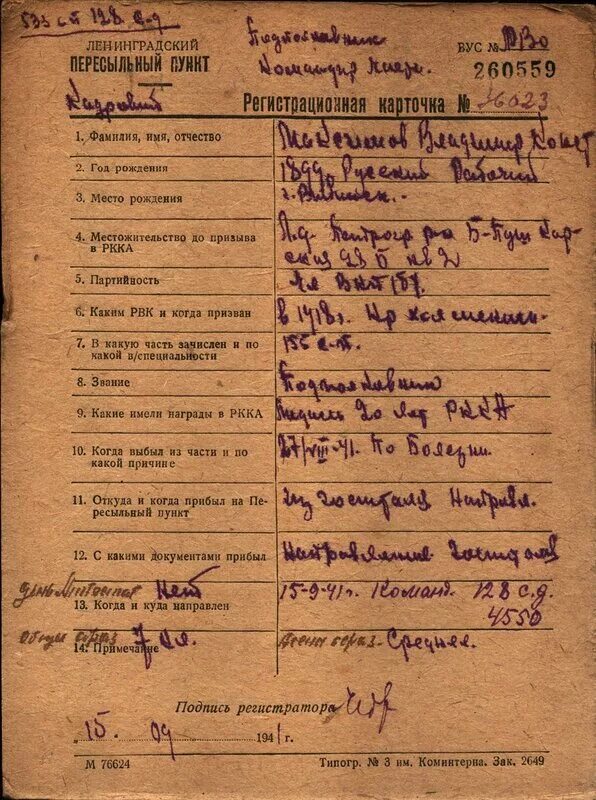 533 сп 128 с.д
ЛЕНИНГРАДСКИЙ
ПЕРЕСЫЛЬНЫЙ ПУНКТ
Подполковник
Командир
ВУС №
260559
Кадровый
Регистрационная карточка № 36023
1. Фамилия, имя, отчество
Владимир Конст
2. Год рождения
1899, Русский Рабочий
3. Место рождения
г.
4. Местожительство до призыва в РККА
Л-д. Петрогр р-н Б-Пушкар
ская
5. Партийность
6. Каким РВК и когда призван
в 1918 г.
7. В какую часть зачислен и по какой в/специальности
155 с.п.
8. Звание
Подполковник
9. Какие имели награды в РККА
Медаль 20 лет РККА
10. Когда выбыл из части и по какой причине
27/VIII-41. По Болезни.
11. Откуда и когда прибыл на Пересыльный пункт
из госпиталя Направл.
12. С какими документами прибыл
Направление госпиталя
Нет
13. Когда и куда направлен
15-9-41 г. Команд. 128 с.д.
4550
Общее образ 7 кл.
14. Примечание
образ. Средняя.
Подпись регистратора
15. 09 1941 г.
М 76624
Типогр. № 3 им. Коминтерна. Зак. 2649